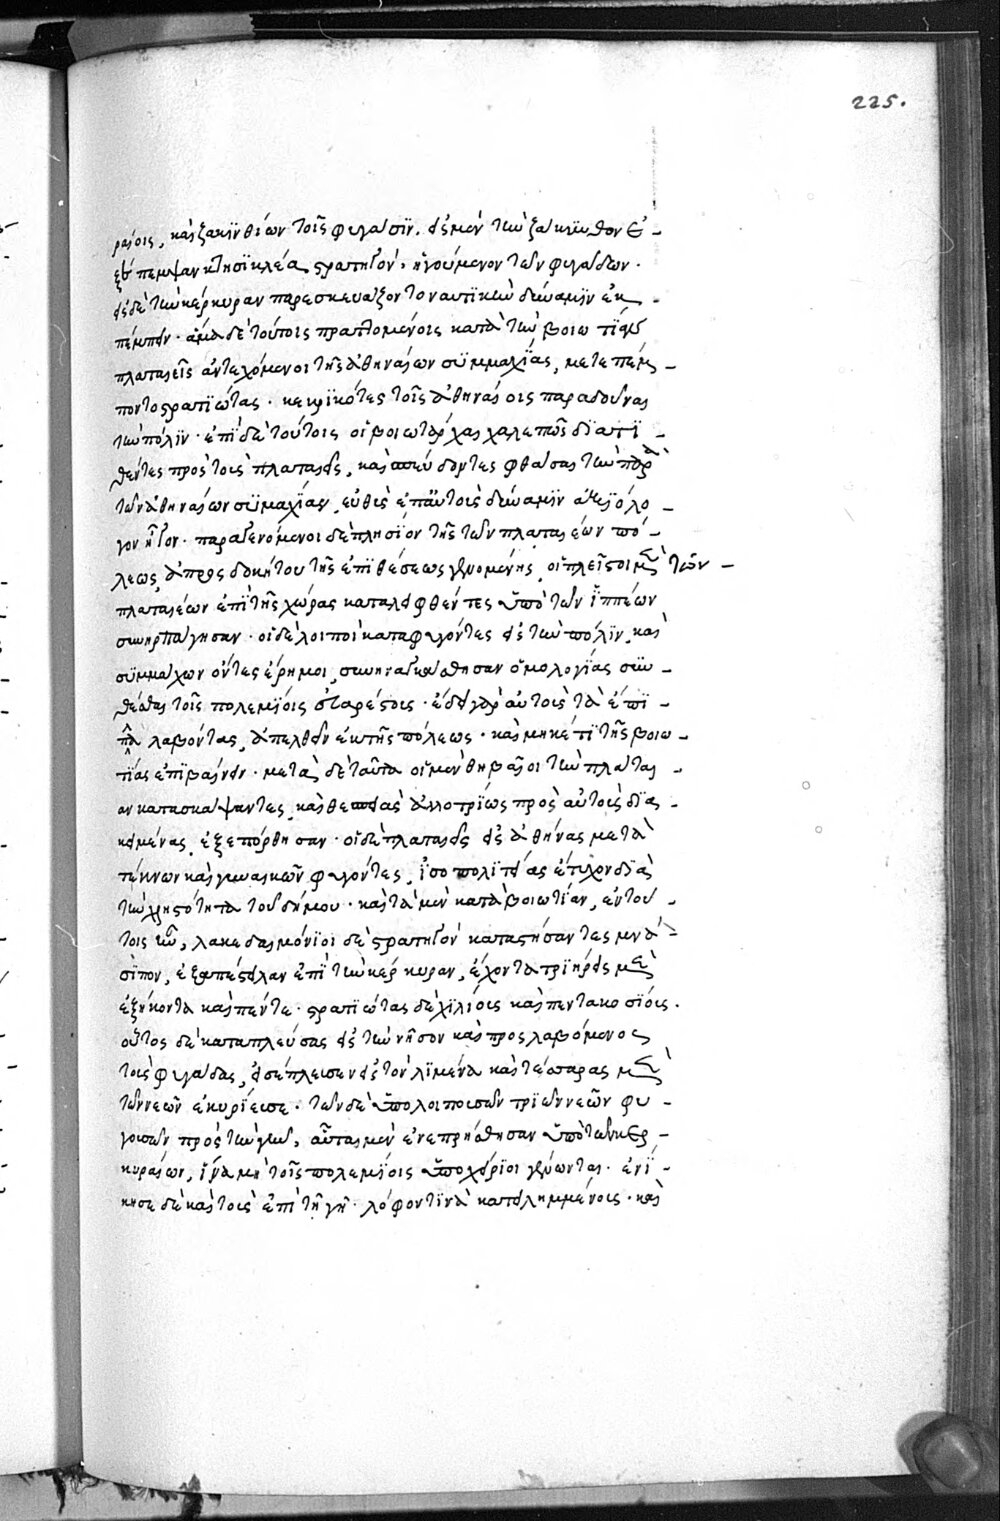 225.
ραίοις, καὶ ζακϋνθίων τοῖς φυγάσϊν. εἰς μὲν τὴν ζάκυνθον ἐ-
ξέπεμψαν κτησϊκλέα στρατηγὸν, ἡγούμενον τῶν φυγάδων.
εἰς δὲ τὴν κέρκυραν παρεσκευάζοντο ναυτϊκὴν δύναμϊν ἐκ-
πέμπειν. ἅμα δὲ τούτοις πραττομένοις κατὰ τὴν βοιωτϊαν
πλαταιεῖς ἀντεχόμενοι τῆς ἀθηναίων συμμαχΐας, μετεπέμ-
ποντο στρατϊώτας. κεκρϊκότες τοῖς ἀθηναίοις παραδοῦναι
τὴν πόλϊν. ἐπῒ δὲ τούτοις οἱ βοιωτάρχαι χαλεπῶς δϊατϊ-
θέντες πρὸς τοὺς πλαταιεῖς, καὶ σπεύδοντες φθάσαι τὴν παρὰ
τῶν ἀθηναίων συμαχΐαν, εὐθὺς ἐπ' αὐτοὺς δύναμϊν ἀξϊόλο-
γον ἦγον. παραγενόμενοι δὲ πλησϊον τῆς τῶν πλαταιέων πό-
λεως, ἀπροσδοκήτου τῆς ἐπϊθέσεως γενομένης, οἱ πλεῖστοι μὲν τῶν-
πλαταιέων ἐπῒ τῆς χώρας καταλειφθέντες ὑπὸ τῶν ἱππέων
συνηρπάγησαν. οἱ δὲ λοιποὶ καταφυγόντες εἰς τὴν πόλϊν, καὶ
συμμάχων ὄντες ἔρημοι, συνηναγκάσθησαν ὁμολογΐας συν-
θέσθαι τοῖς πολεμΐοις εὐαρέστοις. ἔδει γὰρ αὐτοὺς τὰ ἔπϊ-
πλα λαβόντας, ἀπελθεῖν ἐκ τῆς πόλεως. καὶ μηκέτϊ τῆς βοιω-
τΐας ἐπϊβαίνειν. μετὰ δὲ ταῦτα οἱ μὲν θηβαῖοι τὴν πλάται-
αν κατασκάψαντες, καὶ θεσπϊὰς ἀλλοτρΐως πρὸς αὐτοὺς δϊα-
κειμένας, ἐξεπόρθησαν. οἱ δὲ πλαταιεῖς εἰς ἀθήνας μετὰ
τέκνων καὶ γυναικῶν φυγόντες, ἰσοπολϊτείας ἔτυχον δϊὰ
τὴν χρηστότητα τοῦ δήμου. καὶ τὰ μὲν κατὰ βοιωτίαν, ἐν τού-
τοις ἦν, λακεδαιμόνϊοι δὲ στρατηγὸν καταστήσαντες μνά-
σϊπον, ἐξαπέστειλαν ἐπῒ τὴν κέρκυραν, ἔχοντα τριήρεις μὲν
ἑξήκοντα καὶ πέντε. στρατϊώτας δὲ χϊλίους καὶ πεντακοσϊους.
οὗτος δὲ καταπλεύσας εἰς τὴν νῆσον καὶ προσλαβόμενος
τοὺς φυγάδας, εἰσέπλευσεν εἰς τὸν λϊμένα καὶ τέσσαρας μὲν
τῶν νεῶν ἐκυρΐευσε. τῶν δὲ ὑπολοίπουσῶν τριῶν νεῶν φυ-
γουσῶν πρὸς τὴν γῆν, αὗται μὲν ἐνεπρήσθησαν ὑπὸ τῶν κερ-
κυραίων, ἵνα μὴ τοῖς πολεμΐοις ὑποχείρϊοι γένωνται. ἐνΐ-
κησε δὲ καὶ τοὺς ἐπὶ τῆ γῆ. λόφον τϊνὰ κατειλημμένους. καὶ